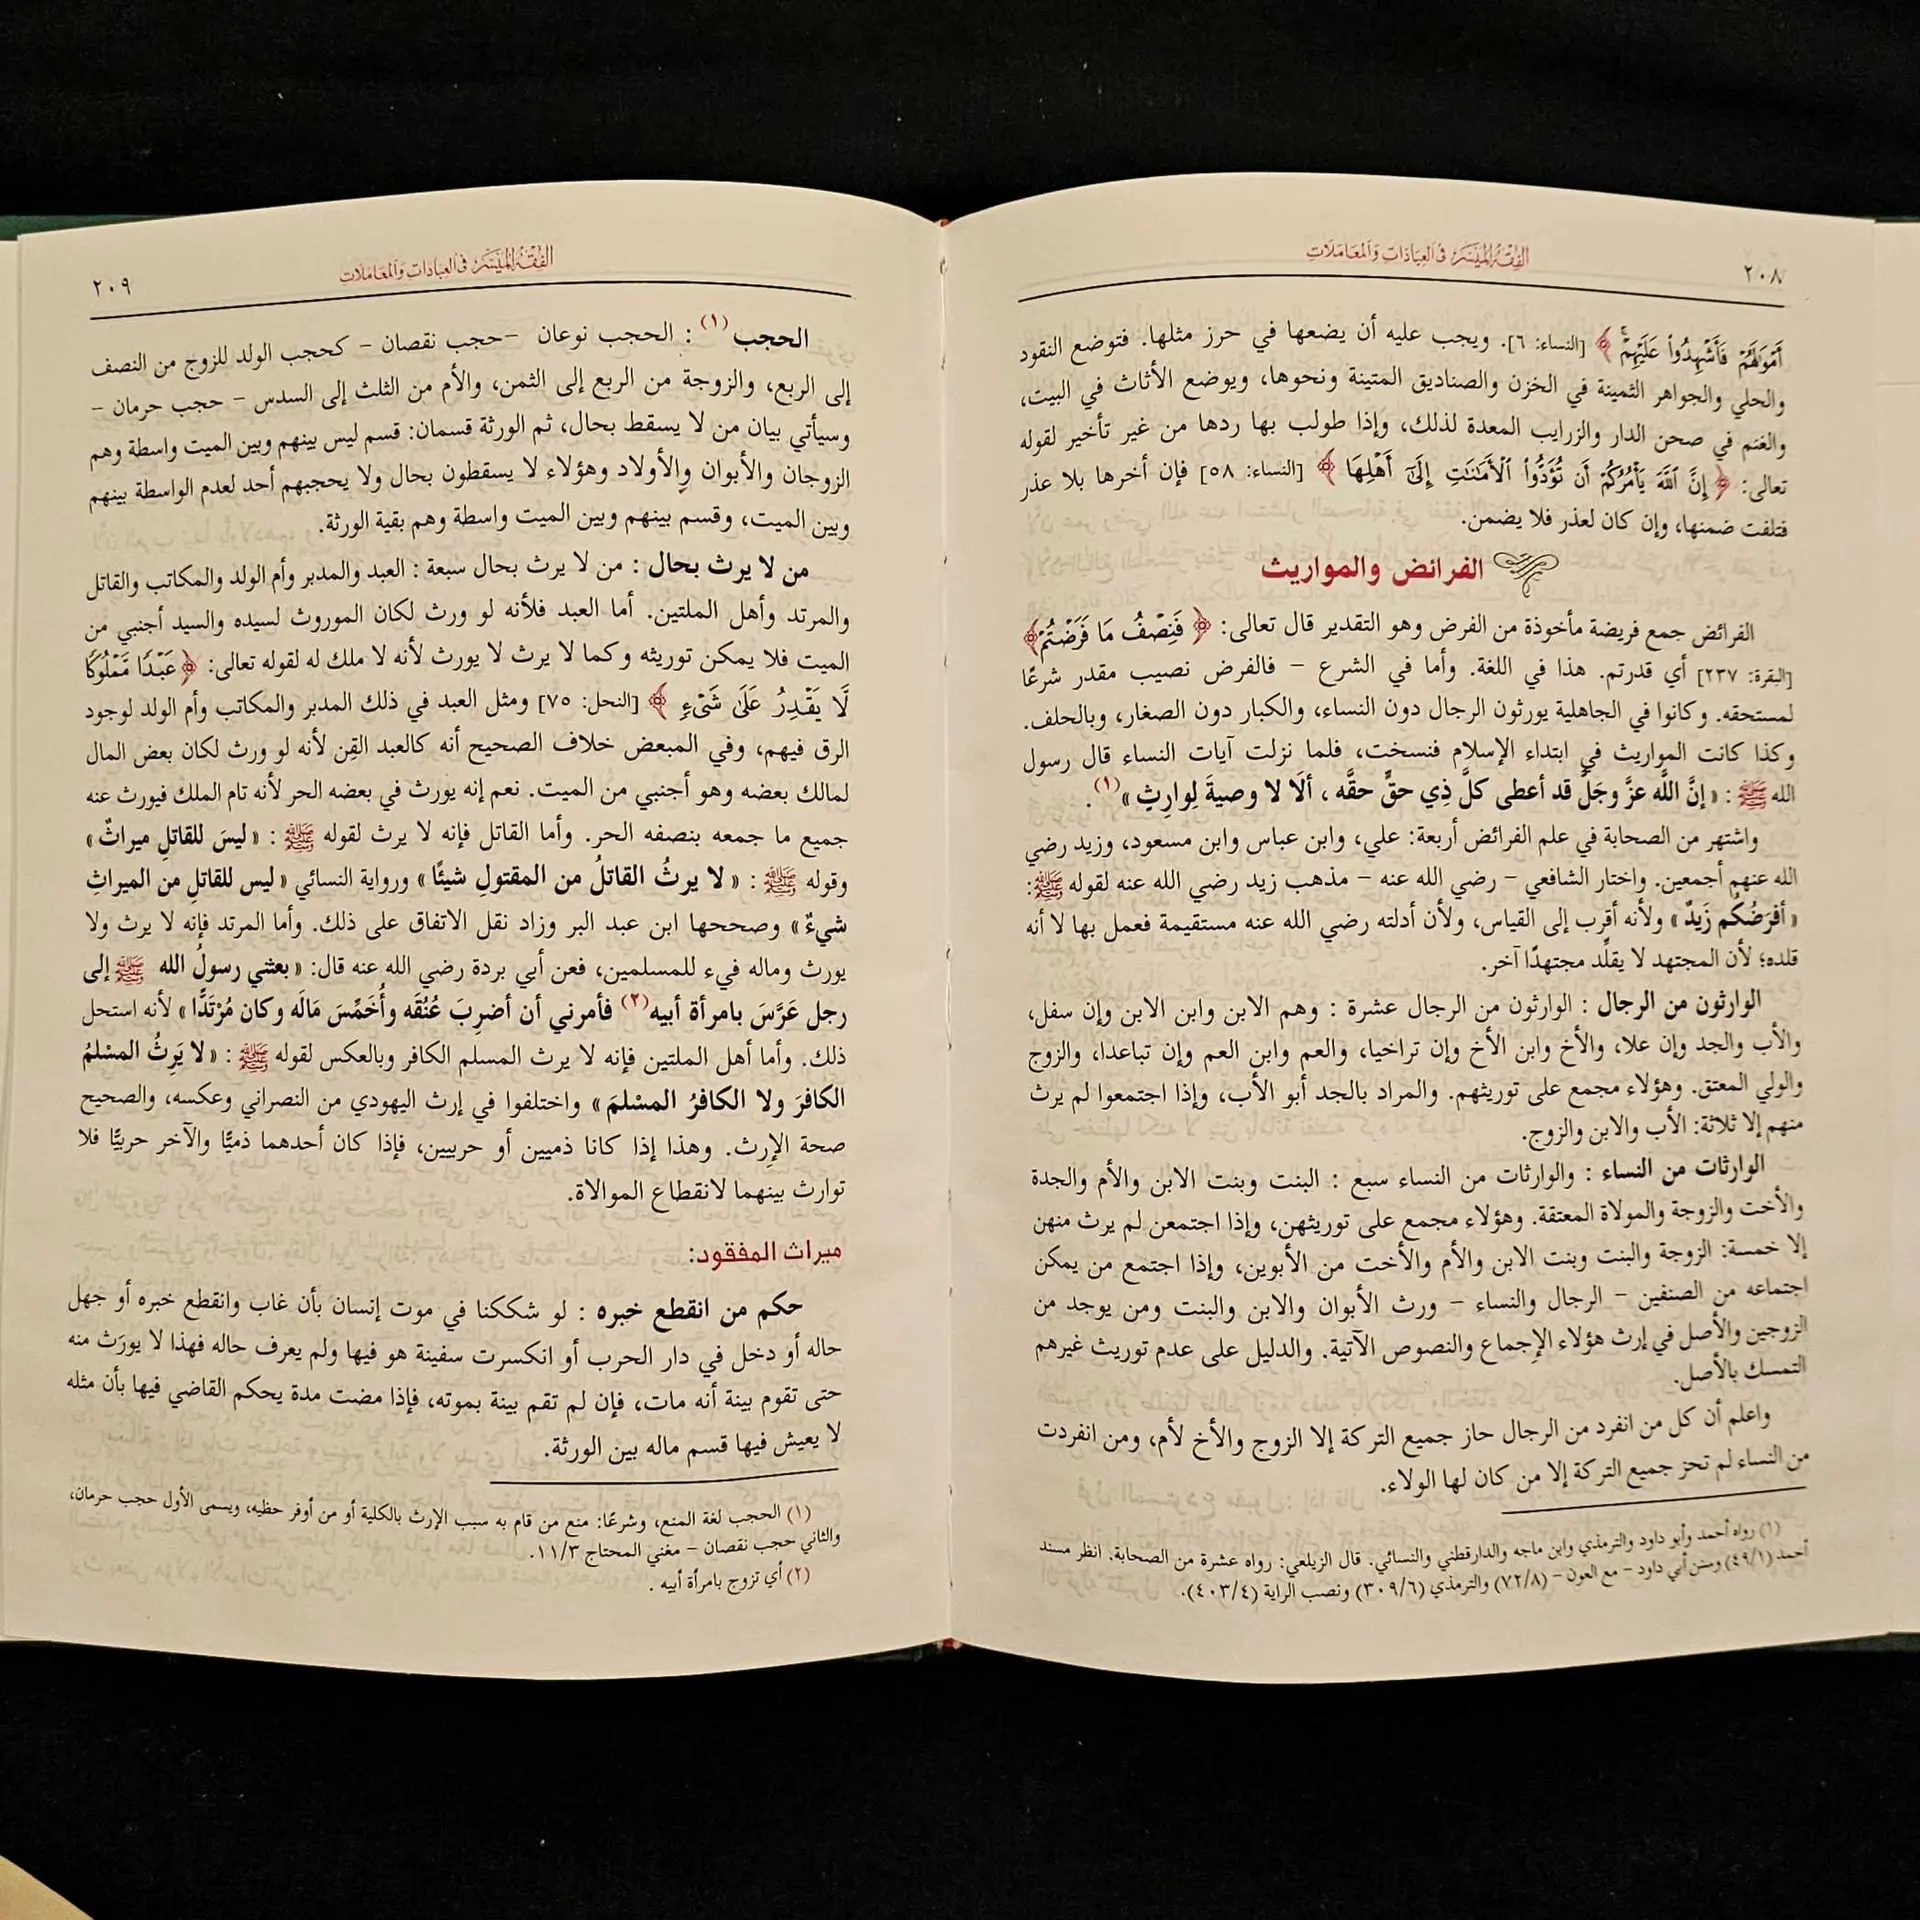 ٢٠٨
الفِقْهُ المُيَسَّر في العِبَادَاتِ وَالمُعَامَلَاتِ
أَمْوَٰلَهُمْ فَأَشْهِدُواْ عَلَيْهِمْ ﴾ [النساء: ٦]. ويجب عليه أن يضعها في حرز مثلها. فتوضع النقود
والحلي والجواهر الثمينة في الخزن والصناديق المتينة ونحوها، ويوضع الأثاث في البيت،
والغنم في صحن الدار والزرايب المعدة لذلك، وإذا طولب بها ردها من غير تأخير لقوله
تعالى: ﴿ إِنَّ ٱللَّهَ يَأْمُرُكُمْ أَن تُؤَدُّواْ ٱلْأَمَٰنَٰتِ إِلَىٰٓ أَهْلِهَا ﴾ [النساء: ٥٨] فإن أخرها بلا عذر
فتلفت ضمنها، وإن كان لعذر فلا يضمن.
الفرائض والمواريث
الفرائض جمع فريضة مأخوذة من الفرض وهو التقدير قال تعالى: ﴿ فَنِصْفُ مَا فَرَضْتُمْ ﴾
[البقرة: ٢٣٧] أي قدرتم. هذا في اللغة. وأما في الشرع – فالفرض نصيب مقدر شرعًا
لمستحقه. وكانوا في الجاهلية يورثون الرجال دون النساء، والكبار دون الصغار، وبالحلف.
وكذا كانت المواريث في ابتداء الإسلام فنسخت، فلما نزلت آيات النساء قال رسول
الله ﷺ : « إنَّ اللَّه عزَّ وجَلَّ قد أعطى كلَّ ذِي حقٍّ حقَّه ، ألَا لا وصيةَ لِوارِثٍ »(١) .
واشتهر من الصحابة في علم الفرائض أربعة: علي، وابن عباس وابن مسعود، وزيد رضي
الله عنهم أجمعين. واختار الشافعي – رضي الله عنه – مذهب زيد رضي الله عنه لقوله ﷺ:
« أفرَضُكُم زَيدٌ » ولأنه أقرب إلى القياس، ولأن أدلته رضي الله عنه مستقيمة فعمل بها لا أنه
قلده؛ لأن المجتهد لا يقلِّد مجتهدًا آخر.
الوارثون من الرجال : الوارثون من الرجال عشرة : وهم الابن وابن الابن وإن سفل،
والأب والجد وإن علا، والأخ وابن الأخ وإن تراخيا، والعم وابن العم وإن تباعدا، والزوج
والولي المعتق. وهؤلاء مجمع على توريثهم. والمراد بالجد أبو الأب، وإذا اجتمعوا لم يرث
منهم إلا ثلاثة: الأب والابن والزوج.
الوارثات من النساء : والوارثات من النساء سبع : البنت وبنت الابن والأم والجدة
والأخت والزوجة والمولاة المعتقة. وهؤلاء مجمع على توريثهن، وإذا اجتمعن لم يرث منهن
إلا خمسة: الزوجة والبنت وبنت الابن والأم والأخت من الأبوين، وإذا اجتمع من يمكن
اجتماعه من الصنفين – الرجال والنساء – ورث الأبوان والابن والبنت ومن يوجد من
الزوجين والأصل في إرث هؤلاء الإجماع والنصوص الآتية. والدليل على عدم توريث غيرهم
التمسك بالأصل.
واعلم أن كل من انفرد من الرجال حاز جميع التركة إلا الزوج والأخ لأم، ومن انفردت
من النساء لم تحز جميع التركة إلا من كان لها الولاء.
(١) رواه أحمد وأبو داود والترمذي وابن ماجه والدارقطني والنسائي. قال الزيلعي: رواه عشرة من الصحابة. انظر مسند
أحمد (٤٩/١) وسنن أبي داود – مع العون – (٧٢/٨) والترمذي (٣٠٩/٦) ونصب الراية (٤٠٣/٤).
الفِقْهُ المُيَسَّر في العِبَادَاتِ وَالمُعَامَلَاتِ
٢٠٩
الحجب (١) : الحجب نوعان –حجب نقصان – كحجب الولد للزوج من النصف
إلى الربع، والزوجة من الربع إلى الثمن، والأم من الثلث إلى السدس – حجب حرمان –
وسيأتي بيان من لا يسقط بحال، ثم الورثة قسمان: قسم ليس بينهم وبين الميت واسطة وهم
الزوجان والأبوان والأولاد وهؤلاء لا يسقطون بحال ولا يحجبهم أحد لعدم الواسطة بينهم
وبين الميت، وقسم بينهم وبين الميت واسطة وهم بقية الورثة.
من لا يرث بحال : من لا يرث بحال سبعة : العبد والمدبر وأم الولد والمكاتب والقاتل
والمرتد وأهل الملتين. أما العبد فلأنه لو ورث لكان الموروث لسيده والسيد أجنبي من
الميت فلا يمكن توريثه وكما لا يرث لا يورث لأنه لا ملك له لقوله تعالى: ﴿ عَبْدًا مَّمْلُوكًا
لَّا يَقْدِرُ عَلَىٰ شَىْءٍ ﴾ [النحل: ٧٥] ومثل العبد في ذلك المدبر والمكاتب وأم الولد لوجود
الرق فيهم، وفي المبعض خلاف الصحيح أنه كالعبد القِن لأنه لو ورث لكان بعض المال
لمالك بعضه وهو أجنبي من الميت. نعم إنه يورث في بعضه الحر لأنه تام الملك فيورث عنه
جميع ما جمعه بنصفه الحر. وأما القاتل فإنه لا يرث لقوله ﷺ : « ليسَ للقاتلِ ميراثٌ »
وقوله ﷺ : « لا يرثُ القاتلُ من المقتولِ شيئًا » ورواية النسائي « ليس للقاتلِ من الميراثِ
شيءٌ » وصححها ابن عبد البر وزاد نقل الاتفاق على ذلك. وأما المرتد فإنه لا يرث ولا
يورث وماله فيء للمسلمين، فعن أبي بردة رضي الله عنه قال: « بعثني رسولُ الله ﷺ إلى
رجل عَرَّسَ بامرأة أبيه(٢) فأمرني أن أضرِبَ عُنُقَه وأُخَمِّسَ مَالَه وكان مُرْتَدًّا » لأنه استحل
ذلك. وأما أهل الملتين فإنه لا يرث المسلم الكافر وبالعكس لقوله ﷺ : « لا يَرِثُ المسْلمُ
الكافرَ ولا الكافرُ المسْلمَ » واختلفوا في إرث اليهودي من النصراني وعكسه، والصحيح
صحة الإرث. وهذا إذا كانا ذميين أو حربيين، فإذا كان أحدهما ذميًّا والآخر حربيًّا فلا
توارث بينهما لانقطاع الموالاة.
ميراث المفقود:
حكم من انقطع خبره : لو شككنا في موت إنسان بأن غاب وانقطع خبره أو جهل
حاله أو دخل في دار الحرب أو انكسرت سفينة هو فيها ولم يعرف حاله فهذا لا يورَث منه
حتى تقوم بينة أنه مات، فإن لم تقم بينة بموته، فإذا مضت مدة يحكم القاضي فيها بأن مثله
لا يعيش فيها قسم ماله بين الورثة.
(١) الحجب لغة المنع، وشرعًا: منع من قام به سبب الإرث بالكلية أو من أوفر حظيه، ويسمى الأول حجب حرمان،
والثاني حجب نقصان – مغني المحتاج ١١/٣.
(٢) أي تزوج بامرأة أبيه .